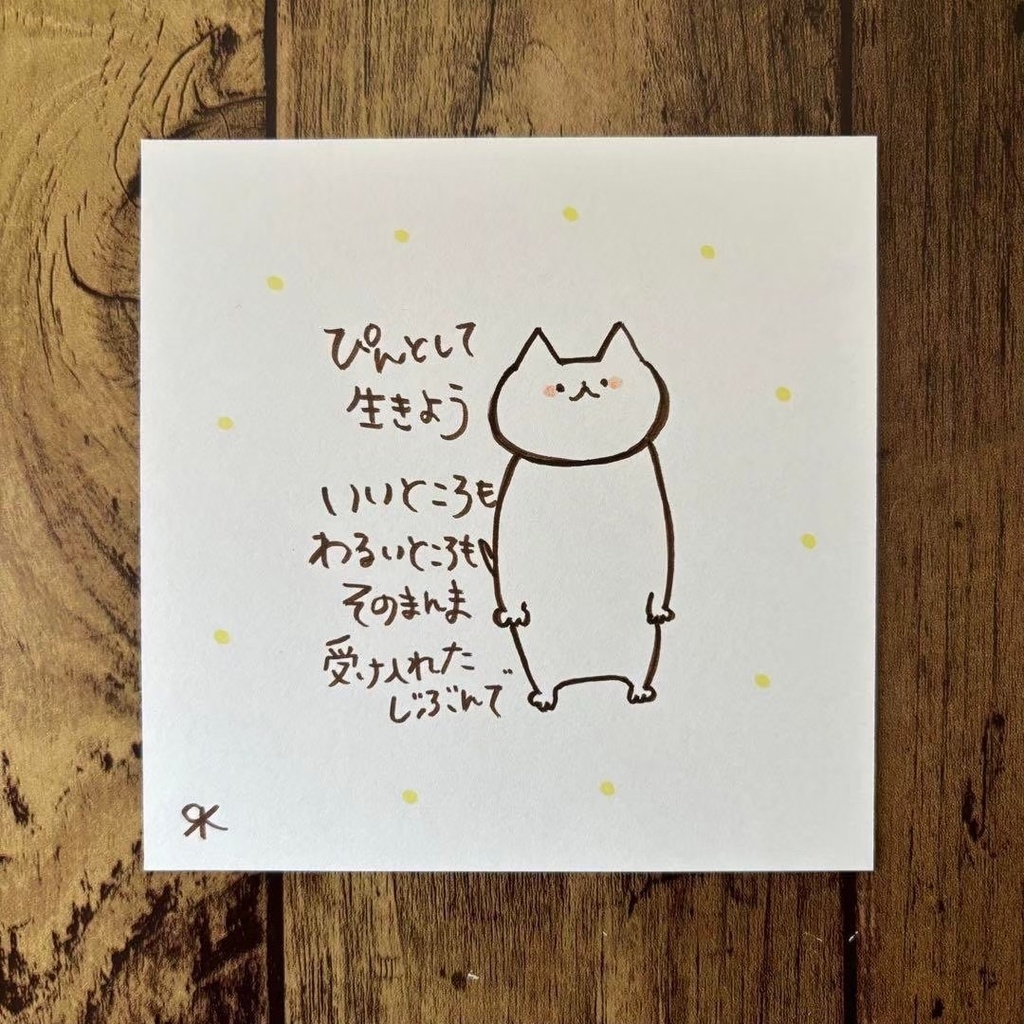 ぴんとして
生きよう
いいところも
わるいところも
そのまんま
受け入れた
じぶんで